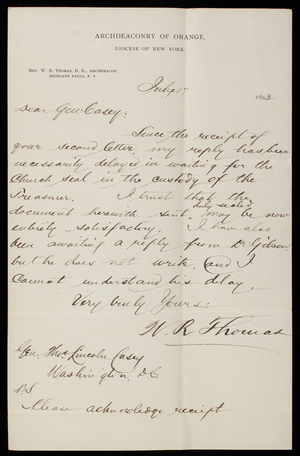 ARCHDEACONRY OF ORANGE,
DIOCESE OF NEW YORK.
REV. W. R. THOMAS, D. D., ARCHDEACON,
HIGHLAND FALLS, N. Y.
July 17 1893
Dear Gen. Casey:
Since the receipt of
your second letter, my reply has been
necessarily delayed in waiting for the
Church seal in the custody of the
Treasurer. I trust that the
duly sealed
document herewith sent, may be now
entirely satisfactory. I have also
been awaiting a reply from Dr. Gibson
but he does not write, and I
cannot understand his delay.
Very truly Yours:
W. R. Thomas
Gen. Thos. Lincoln Casey
Washington, D.C.
P.S.
Please acknowledge receipt